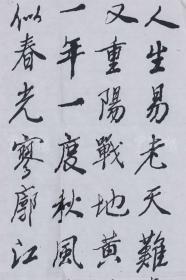 人生易老天難
又重陽戰地黄
一年一度秋風
似春光寥廓江